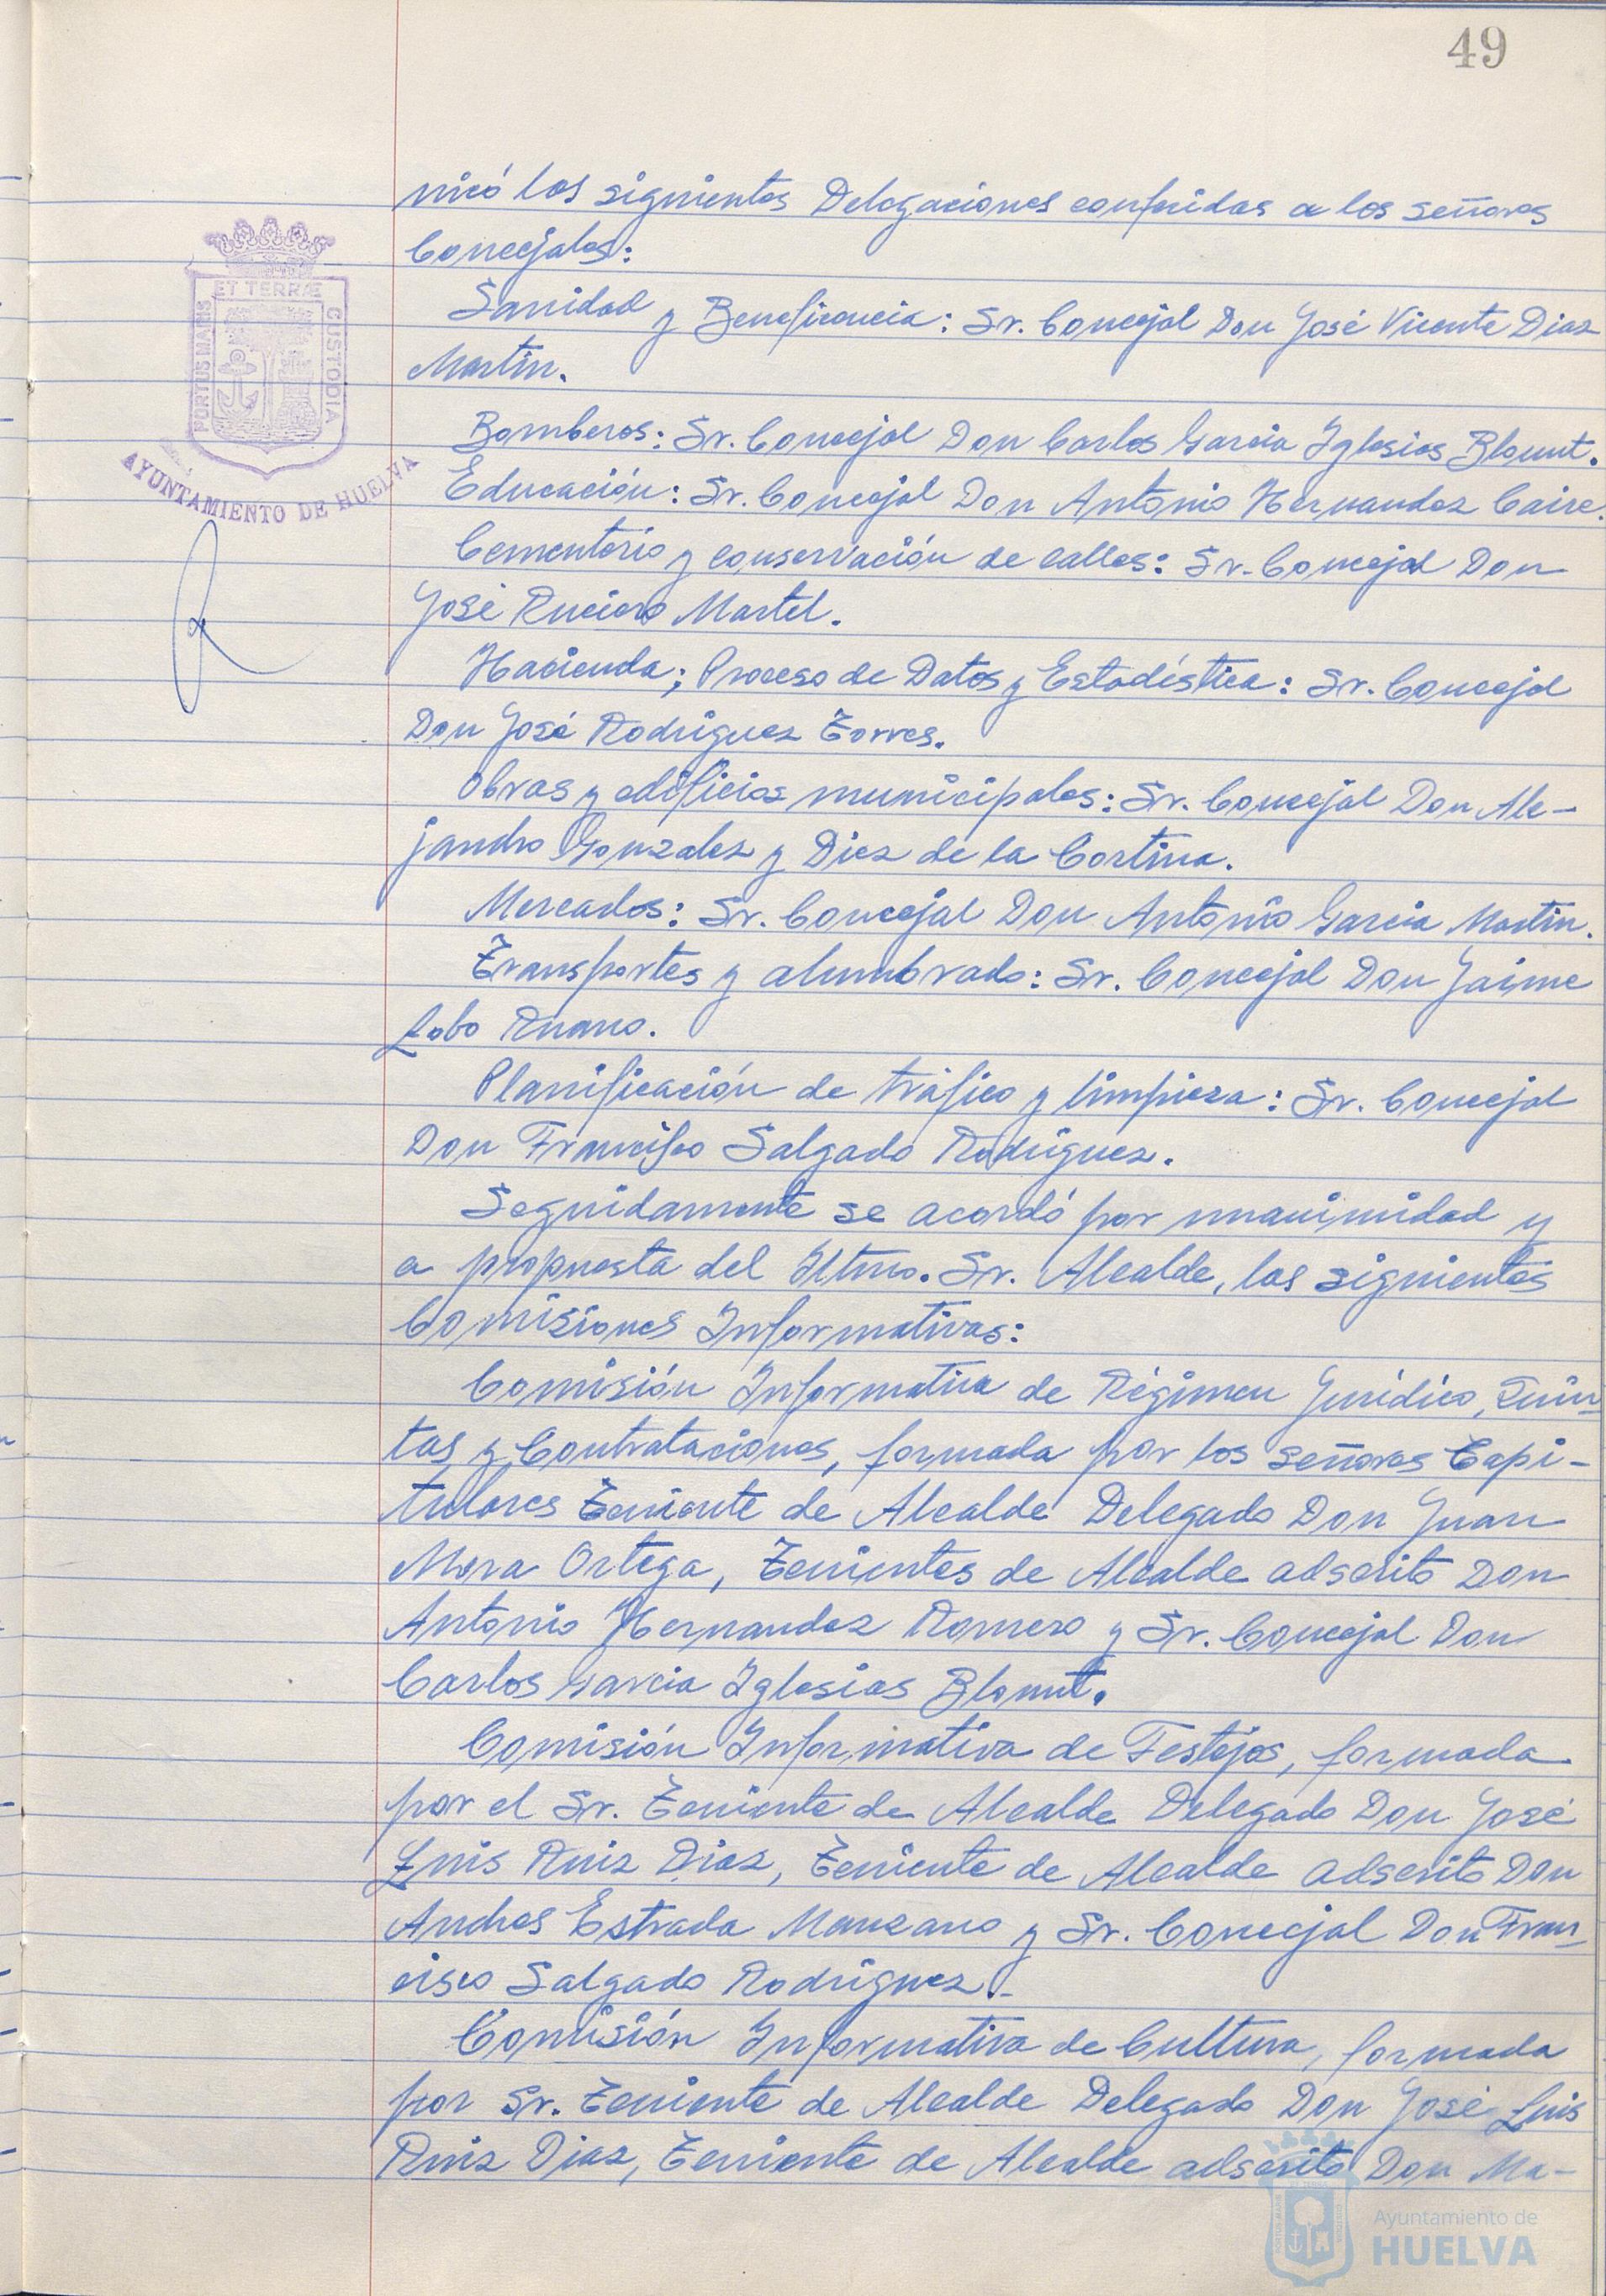 49
nicó las siguientes Delegaciones conferidas a los señores
Concejales:
Sanidad y Beneficencia: Sr. Concejal Don José Vicente Diaz
Martin.
Bomberos: Sr. Concejal Don Carlos Garcia Iglesias Blount.
Educación: Sr. Concejal Don Antonio Hernandez Caire.
Cementerio y conservación de calles: Sr. Concejal Don
José Ruciero Martel.
Hacienda; Proceso de Datos y Estadística: Sr. Concejal
Don José Rodriguez Torres.
Obras y edificios municipales: Sr. Concejal Don Ale-
jandro Gonzalez y Diez de la Cortina.
Mercados: Sr. Concejal Don Antonio Garcia Martin.
Transportes y alumbrado: Sr. Concejal Don Jaime
Lobo Ruano.
Planificación de tráfico y limpieza: Sr. Concejal
Don Francisco Salgado Rodriguez.
Seguidamente se acordó por unanimidad y
a propuesta del Iltmo. Sr. Alcalde, las siguientes
Comisiones Informativas:
Comisión Informativa de Régimen Jurídico, Quin-
tas y Contrataciones, formada por los señores Capi-
tulares Teniente de Alcalde Delegado Don Juan
Mora Ortega, Tenientes de Alcalde adscrito Don
Antonio Hernandez Romero y Sr. Concejal Don
Carlos Garcia Iglesias Blount.
Comisión Informativa de Festejos, formada
por el Sr. Teniente de Alcalde Delegado Don José
Luis Ruiz Diaz, Teniente de Alcalde adscrito Don
Andres Estrada Manzano y Sr. Concejal Don Fran-
cisco Salgado Rodriguez.-
Comisión Informativa de Cultura, formada
por Sr. Teniente de Alcalde Delegado Don José Luis
Ruiz Diaz, Teniente de Alcalde adscrito Don Ma-
PORTUS MARIS
ET TERRÆ
CUSTODIA
AYUNTAMIENTO DE HUELVA
Ayuntamiento de
HUELVA